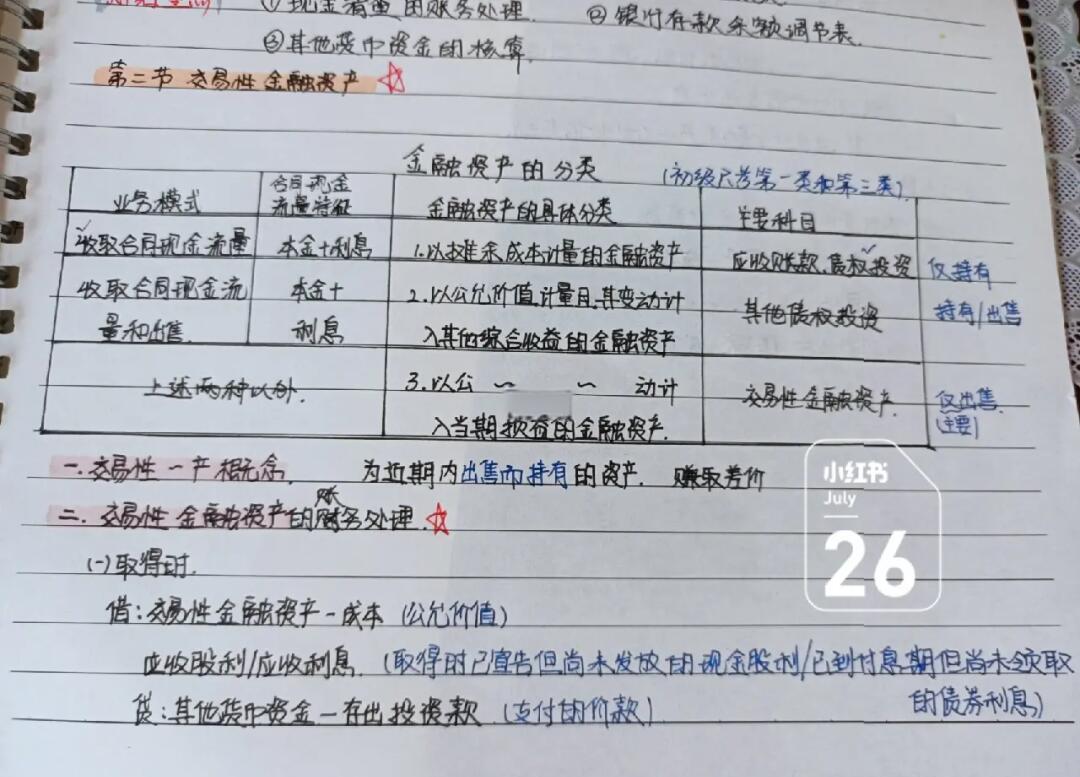 ①现金清查的账务处理. ②银行存款余额调节表.
③其他货币资金的核算.
第二节 交易性金融资产 ☆
金融资产的分类 (初级只考第一类和第三类).
业务模式 合同现金流量特征 金融资产的具体分类 主要科目
收取合同现金流量 本金+利息 1.以摊余成本计量的金融资产 应收账款、债权投资 仅持有
收取合同现金流 本金+ 2.以公允价值计量且其变动计 其他债权投资 持有/出售
量和出售. 利息 入其他综合收益的金融资产
上述两种以外. 3.以公 ~ ~ 动计 交易性金融资产. 仅出售
入当期损益的金融资产. (主要)
一.交易性一产概念. 为近期内出售而持有的资产. 赚取差价
账
二.交易性金融资产的财务处理.☆
(一)取得时.
借:交易性金融资产-成本 (公允价值)
应收股利/应收利息.(取得时已宣告但尚未发放的现金股利/已到付息期但尚未领取
的债券利息)
贷:其他货币资金-存出投资款 (支付的价款)
小红书
July
26